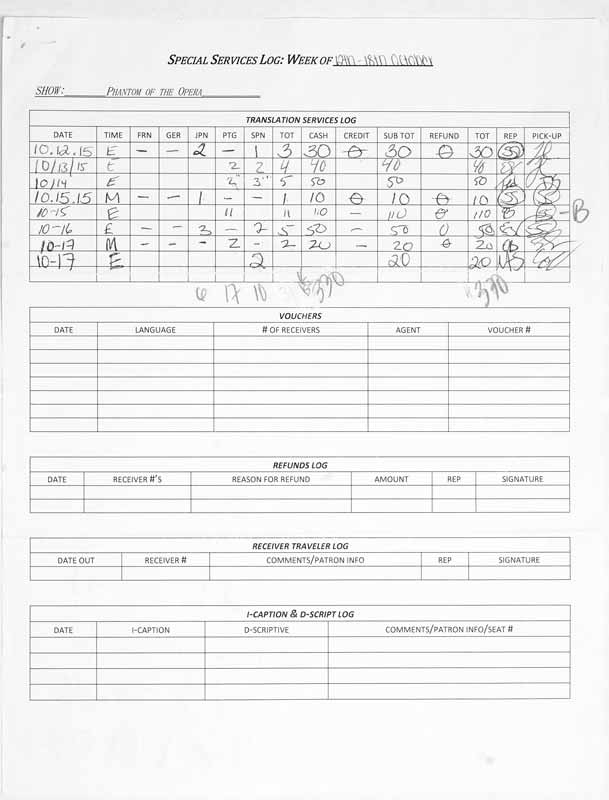 SPECIAL SERVICES LOG: WEEK OF 12th - 18th October
SHOW: PHANTOM OF THE OPERA
TRANSLATION SERVICES LOG
DATE TIME FRN GER JPN PTG SPN TOT CASH CREDIT SUB TOT REFUND TOT REP PICK-UP
10.12.15 E – – 2 – 1 3 30 0 30 0 30 SS
10/13/15 E 2 2 4 40 40 40
10/14 E 2 3 5 50 50 50
10.15.15 M – – 1 – – 1 10 0 10 0 10 SS SS
10-15 E 11 11 110 – 110 0 110 B SS – B
10-16 E – – 3 – 2 5 50 – 50 0 50 SS
10-17 M – – – 2 – 2 20 – 20 0 20
10-17 E 2 20 20 MS
6 17 10 31 330 330
VOUCHERS
DATE LANGUAGE # OF RECEIVERS AGENT VOUCHER #
REFUNDS LOG
DATE RECEIVER #'S REASON FOR REFUND AMOUNT REP SIGNATURE
RECEIVER TRAVELER LOG
DATE OUT RECEIVER # COMMENTS/PATRON INFO REP SIGNATURE
I-CAPTION & D-SCRIPT LOG
DATE I-CAPTION D-SCRIPTIVE COMMENTS/PATRON INFO/SEAT #